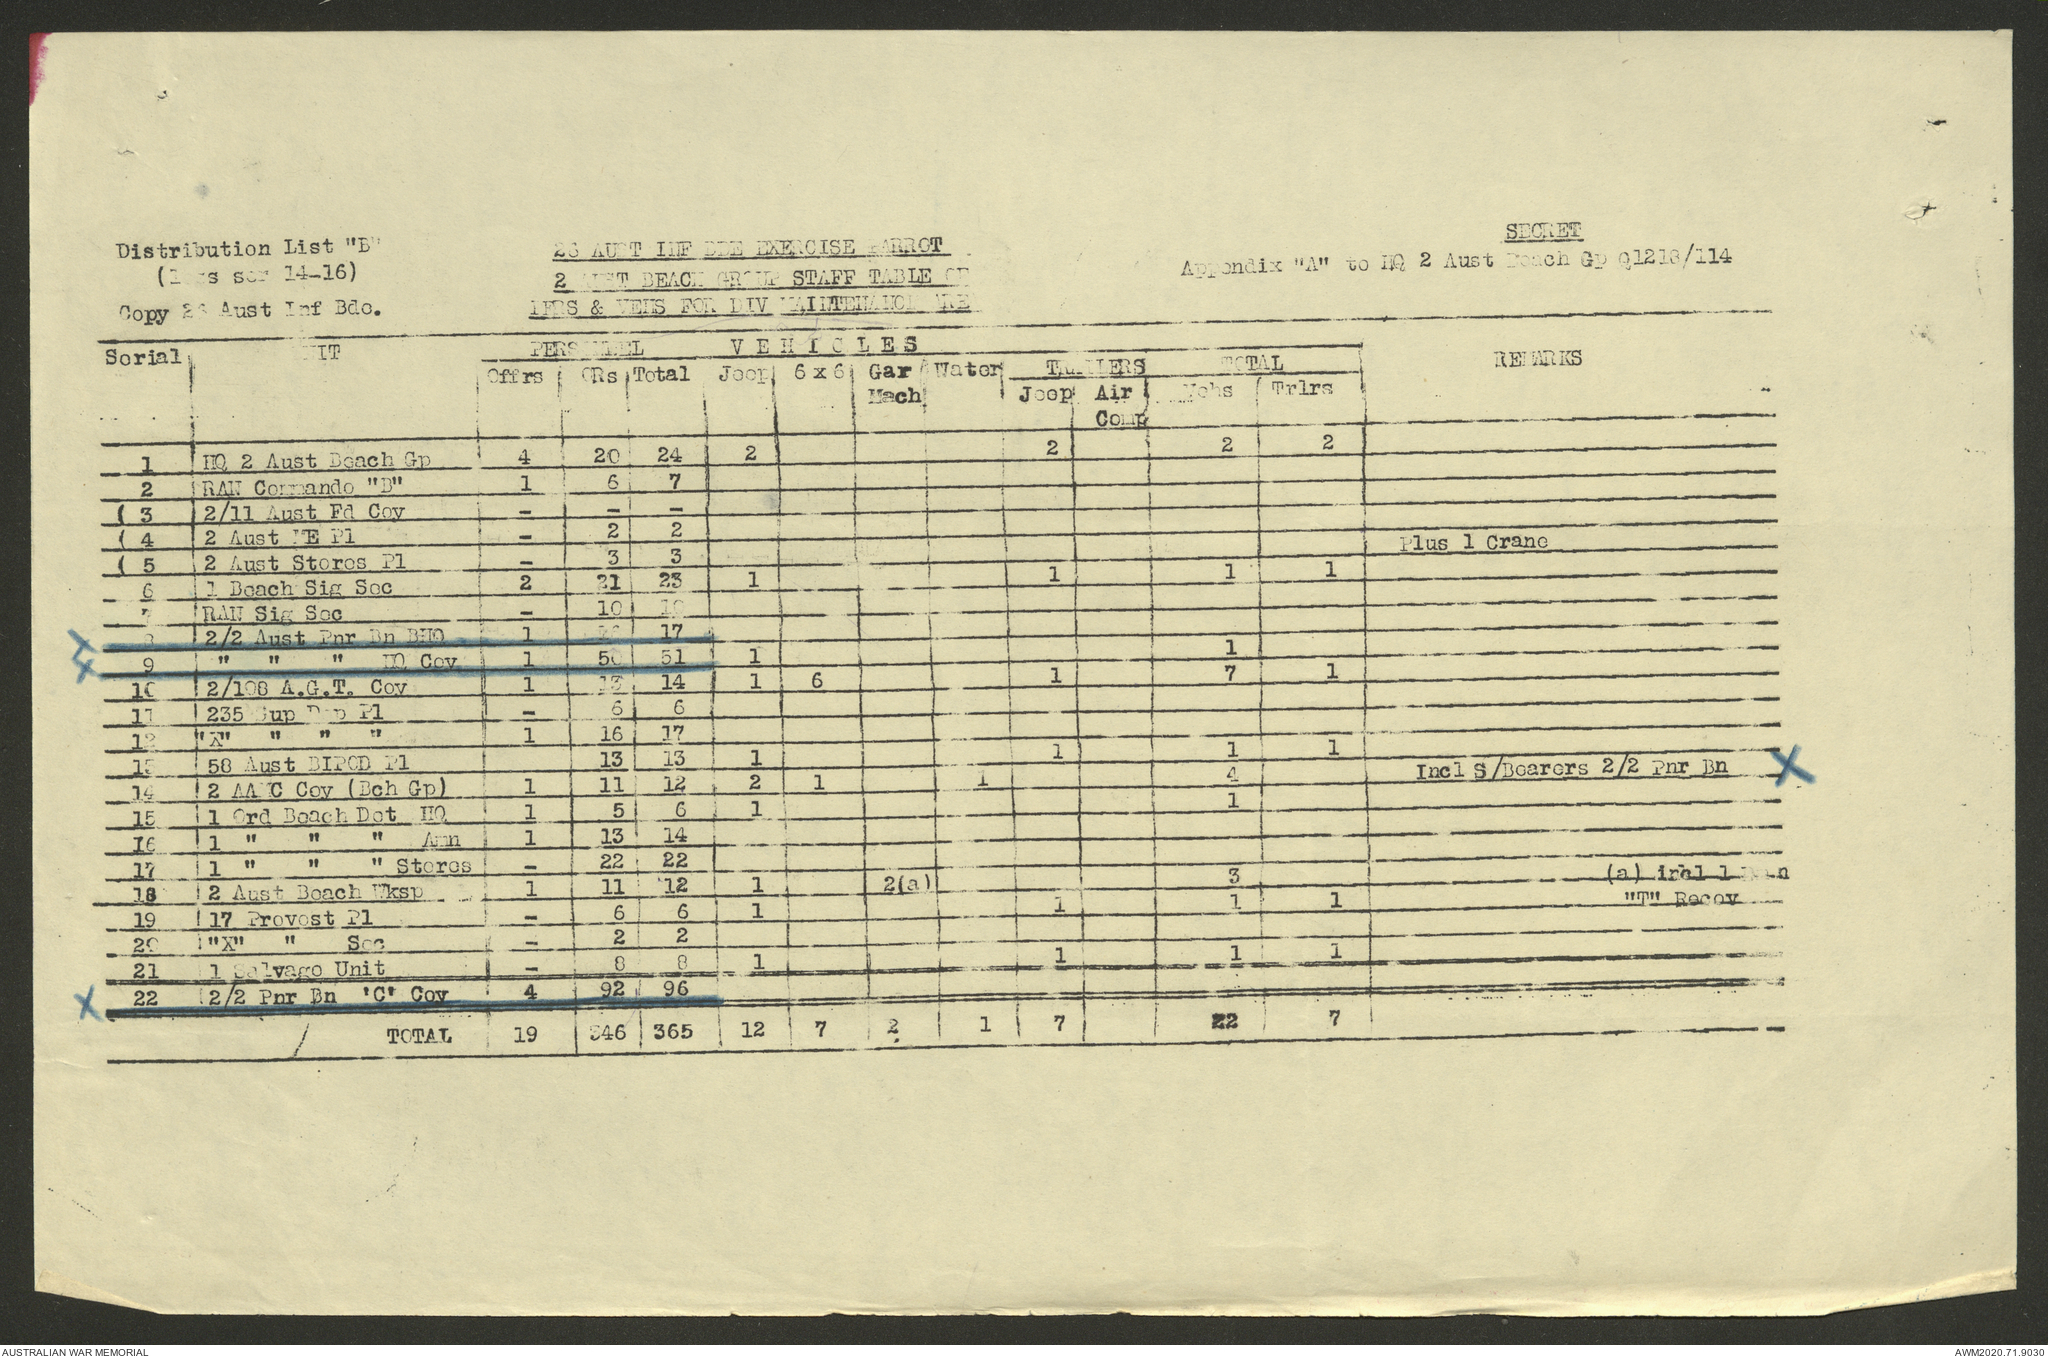 Distribution List "B"
(less ser 14-16)
Copy 26 Aust Inf Bde.
26 AUST INF BDE EXERCISE PARROT
2 AUST BEACH GROUP STAFF TABLE OF
PERS & VEHS FOR DIV MAINTENANCE AREA
SECRET
Appendix "A" to HQ 2 Aust Beach Gp Q1218/114
Serial UNIT PERSONNEL VEHICLES TRAILERS TOTAL REMARKS
Offrs ORs Total Jeep 6 x 6 Gar Mach Water Jeep Air Comp Vehs Trlrs
1 HQ 2 Aust Beach Gp 4 20 24 2 2 2 2
2 RAN Commando "B" 1 6 7
( 3 2/11 Aust Fd Coy - - -
( 4 2 Aust ME Pl - 2 2 Plus 1 Crane
( 5 2 Aust Stores Pl - 3 3
6 1 Beach Sig Sec 2 21 23 1 1 1 1
7 RAN Sig Sec - 10 10
8 2/2 Aust Pnr Bn BHQ 1 17
9 " " " HQ Coy 1 50 51 1 1
10 2/108 A.G.T. Coy 1 13 14 1 6 1 7 1
11 235 Sup Dep Pl - 6 6
12 "X" " " " 1 16 17
13 58 Aust BIPOD Pl 13 13 1 1 1 1
14 2 AAMC Coy (Bch Gp) 1 11 12 2 1 1 4 Incl S/Bearers 2/2 Pnr Bn X
15 1 Ord Beach Det HQ 1 5 6 1 1
16 1 " " " Amn 1 13 14
17 1 " " " Stores - 22 22
18 2 Aust Beach Wksp 1 11 12 1 2(a) 3 (a) incl 1
19 17 Provost Pl - 6 6 1 1 1 1 "T" Recov
20 "X" " Sec - 2 2
21 1 Salvage Unit - 8 8 1 1 1 1
X 22 2/2 Pnr Bn 'C' Coy 4 92 96
TOTAL 19 346 365 12 7 2 1 7 22 7
AUSTRALIAN WAR MEMORIAL
AWM2020.71.9030